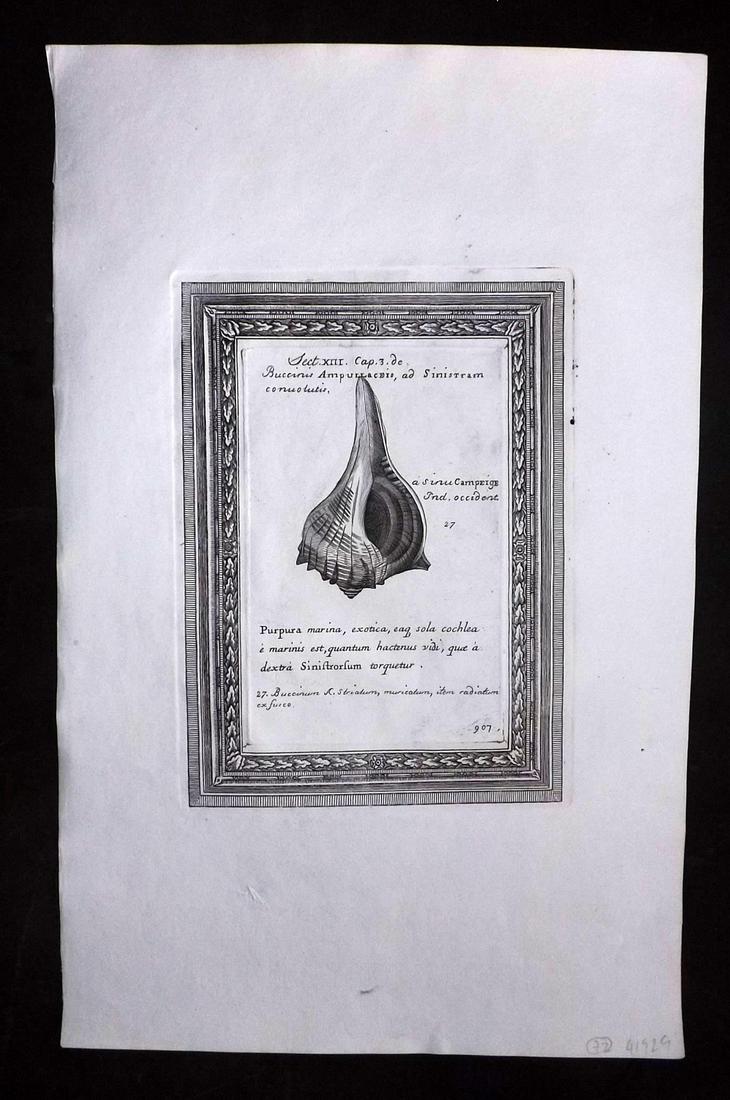 Sect. XIII. Cap. 3. de
Buccinis Ampullaceis, ad Sinistram
convolutis,
a sinu Campeige
Ind. occident.
27
Purpura marina, exotica, eaq sola cochlea
è marinis est, quantum hactenus vidi, quæ à
dextrâ Sinistrorsum torquetur.
27. Buccinum A. Striatum, muricatum, item radiatum
ex fusco
907.
72 41929